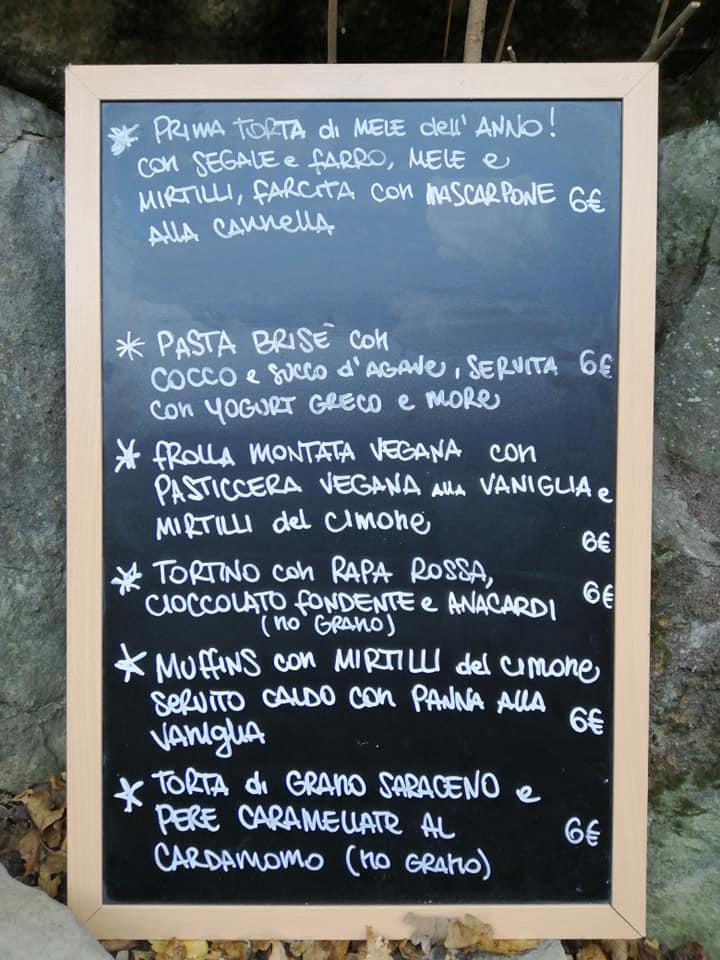 * PRIMA TORTA di MELE dell'ANNO!
con SEGALE e FARRO, MELE e
MIRTILLI, FARCITA con MASCARPONE 6€
ALLA CANNELLA
* PASTA BRISE` con
COCCO e SUCCO d'AGAVE, SERVITA 6€
con YOGURT GRECO e MORE
* FROLLA MONTATA VEGANA con
PASTICCERA VEGANA ALLA VANIGLIA e
MIRTILLI del CIMONE 6€
* TORTINO con RAPA ROSSA,
CIOCCOLATO FONDENTE e ANACARDI 6€
(NO GRANO)
* MUFFINS con MIRTILLI del CIMONE
SERVITO CALDO con PANNA ALLA
VANIGLIA 6€
* TORTA di GRANO SARACENO e
PERE CARAMELLATE AL 6€
CARDAMOMO (NO GRANO)